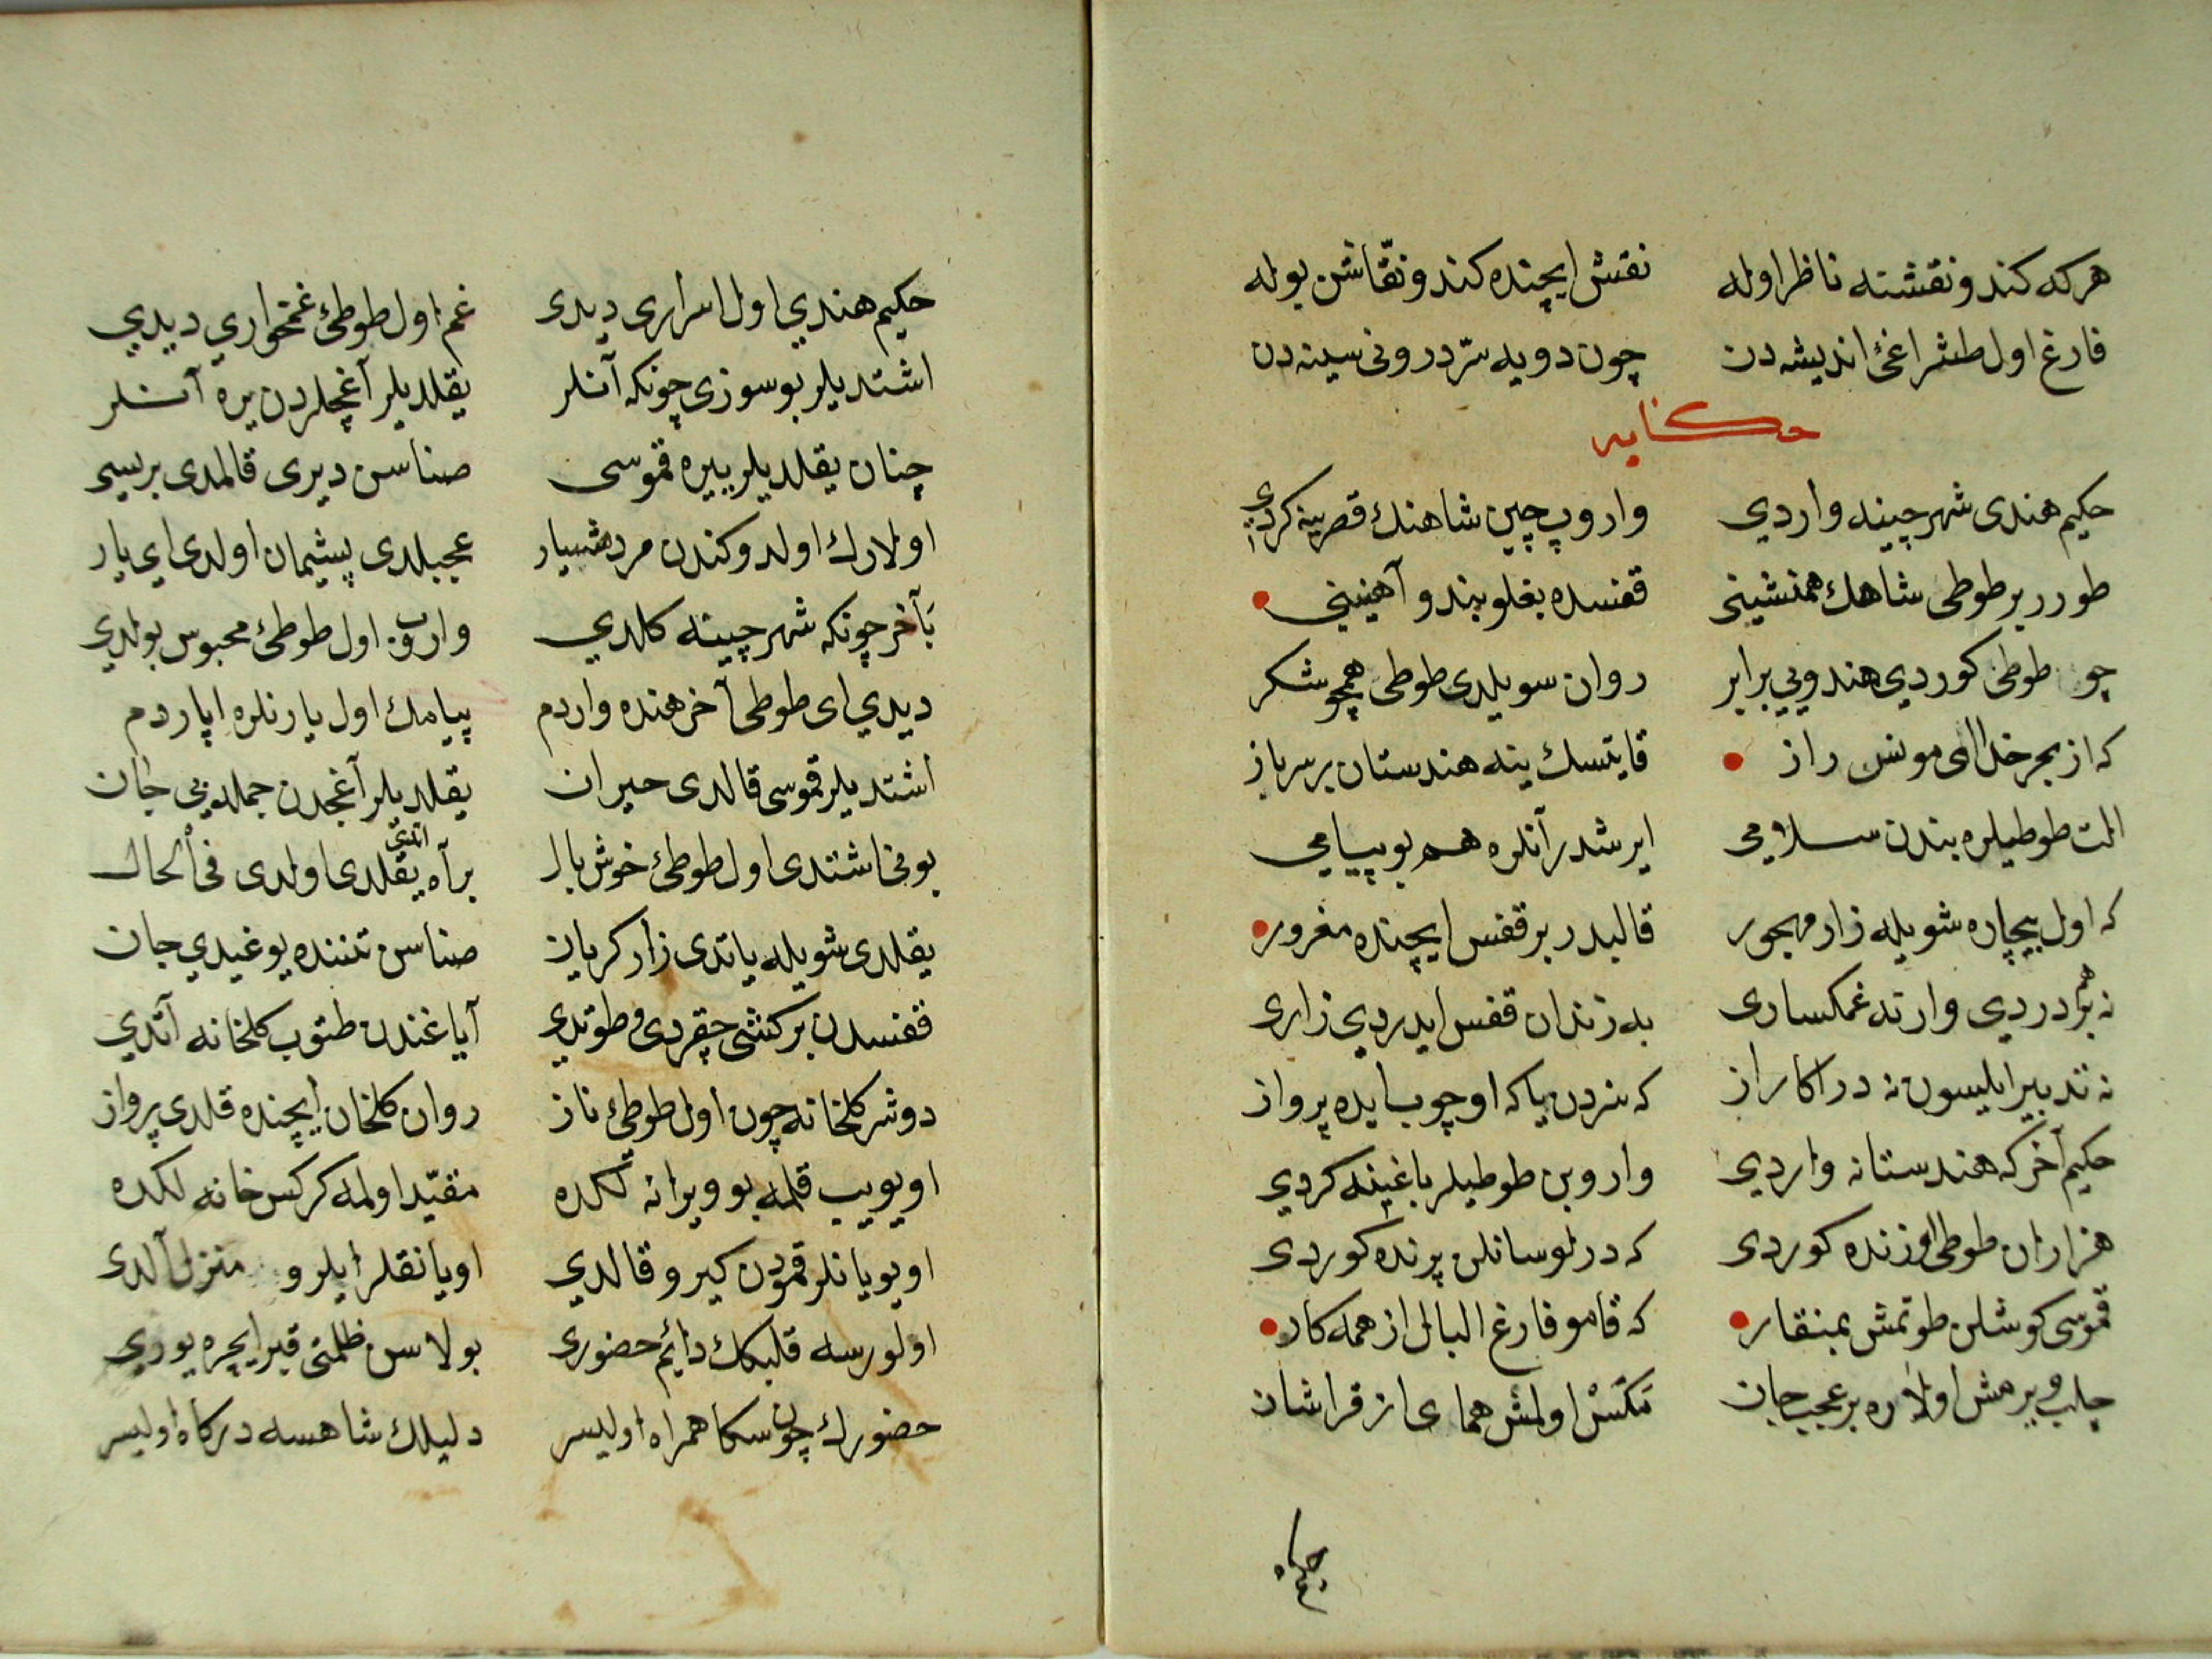 هركه كندو نقشنه ناظر اوله نقش ايچنده كندو نقّاشن بوله
فارغ اول طشراغئ انديشه دن چون دويه سرّ درونى سينه دن
حكايه
حكيم هندى شهر چينه واردي واروب چين شاهنك قصرينه كردى
طورر بر طوطى شاهك همنشينى قفسده بغلو بند و آهنينى
چو طوطى كوردي هندويي برابر روان سويلدى طوطى همچو شكر
كه از بهر خدا اى مونس راز قايتسك ينه هندستان برسر باز
الت طوطيلره بندن سلامى ايرشدر آنلره هم بو پيامي
كه اول بيچاره شويله زار مهجور قالبدر بر قفس ايچنده مغرور
نه همدردي وار نه غمكسارى به زندان قفس ايدردي زارى
نه تدبير ايليسون نه در اكا راز كه سزدن ياكه اوچوب ايده پرواز
حكيم آخر كه هندستانه واردي واروبن طوطيلر باغينه كردي
هزاران طوطى اوزنده كوردى كه درلو سانلن پرنده كوردى
قموسى كوشلن طوتمش بمنقار كه قامو فارغ البال از همه كار
چلب ويرمش اولاره بر عجب جان مكس اولمش هماى از قراشان
حكيم هندي اول اسرارى ديدى غم اول طوطئ غمخواري ديدي
اشتديلر بو سوزى چونكه آنلر يقلديلر آغچلردن يره آنلر
چنان يقلديلر ييره قموسى صناسن ديرى قالمدى برسى
اولارك اولدوكندن مرد هشيار عجبلدى پشيمان اولدى اى يار
بآخر چونكه شهر چينه كلدي واروب اول طوطئ محبوس بولدي
ديدي اى طوطى آخر هنده واردم پيامك اول يارنلره اپاردم
اشتديلر قموسى قالدى حيران يقلديلر آغجدن جمله بي جان
بونى اشتدى اول طوطئ خوش بال بر آه اتدى يقلدى اولدى فى الحال
يقلدى شويله ياتدى زار كريان صناسن تننده يوغيدي جان
قفسدن بر كشى چقردى و طوتدي آياغندن طتوب كلخانه آتدي
دوشر كلخانه چون اول طوطئ ناز روان كلخان ايچنده قلدى پرواز
اويويب قلمه بو ويرانه لكده مقيّد اولمه كركس خانه لكده
اويويانلر قمودن كيرو قالدي اويانقلر ايلرو منزل آلدى
اولورسه قلبكك دائم حضورى بولاسن ظلمتى قبر ايچره يورى
حضورك چون سكا همراه اوليسر دليلك شاهسه دركاه اوليسر
حكيم